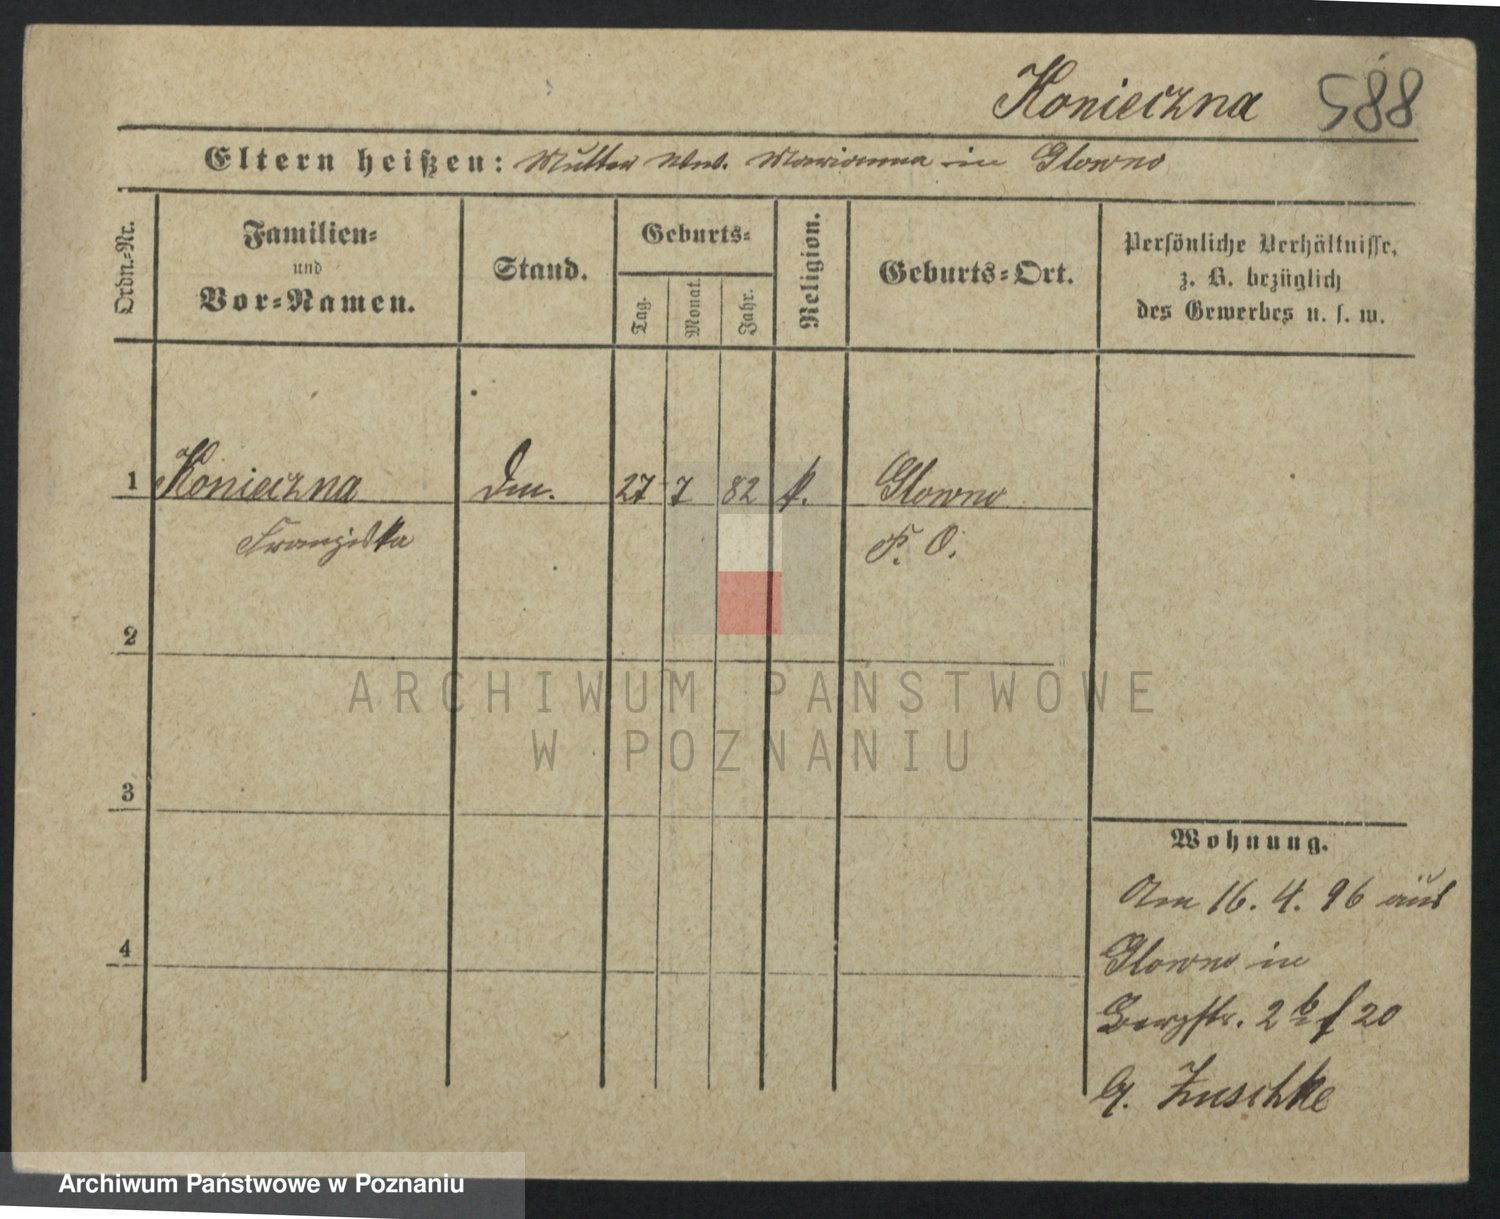 Konieczna 588
Eltern heißen: Mutter Ww. Marianna in Glowno
Ordn.-Nr.
Familien-
und
Vor-Namen.
Stand.
Geburts-
Tag.
Monat.
Jahr.
Religion.
Geburts-Ort.
Persönliche Verhältnisse,
z. B. bezüglich
des Gewerbes u. s. w.
1 Konieczna 27 7 82 k. Glowno
Franziska P. O.
2
ARCHIWUM PAŃSTWOWE
W POZNANIU
3
Wohnung.
Am 16. 4. 96 aus
4
Glowno in
Bergstr. 2 b 20
Zuschke
Archiwum Państwowe w Poznaniu